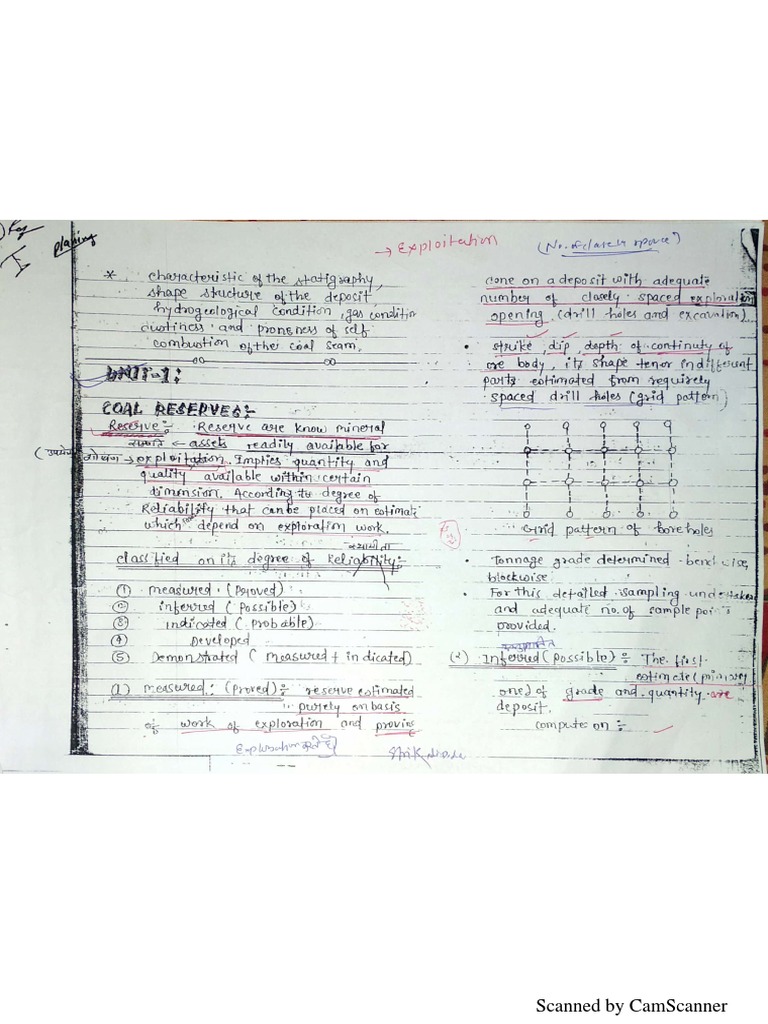 planing
→ Exploitation
(No. of closely space)
* characteristic of the statigraphy,
shape structure of the deposit,
hydrogeological condition, gas condition
dustiness and proneness of self
combustion of the coal seam.
UNIT-1:
COAL RESERVES:-
Reserve:- Reserve are know mineral
← assets readily available for
→ exploitation. Implies quantity and
quality available within certain
dimension, According to degree of
Reliability that can be placed on estimate
which depend on exploration work.
classified on its degree of Reliability:-
① measured. (proved)
② inferred (possible)
③ indicated (probable)
④ Developed
⑤ Demonstrated ( measured + indicated)
(1) measured: (proved):- reserve estimated
purely on basis
of work of exploration and proving
Exploration
cone on a deposit with adequate
number of closely spaced exploration
opening. (drill holes and excavation)
• strike, dip, depth of continuty of
ore body, its shape tenor in different
parts estimated from requirely
spaced drill holes (grid pattern)
Grid pattern of boreholes
• Tonnage grade determined bench wise,
blockwise
• For this detailed sampling undertaken
and adequate no. of sample points
provided.
(२) Inferred (possible):- The first
estimate (primary
one) of grade and quantity are
deposit.
compute on :-
Scanned by CamScanner